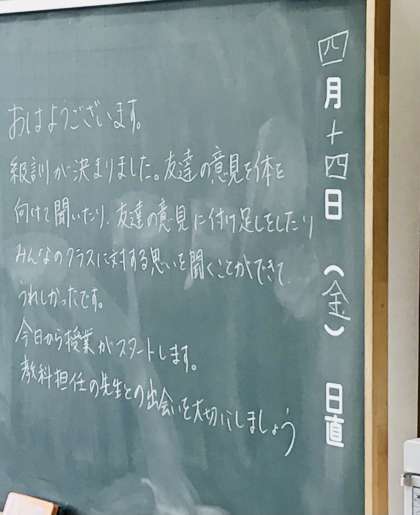 四月十四日（金）　日直
おはようございます。
級訓が決まりました。友達の意見を体を
向けて聞いたり、友達の意見に付け足しをしたり
みんなのクラスに対する思いを聞くことができて
うれしかったです。
今日から授業がスタートします。
教科担任の先生との出会いを大切にしましょう